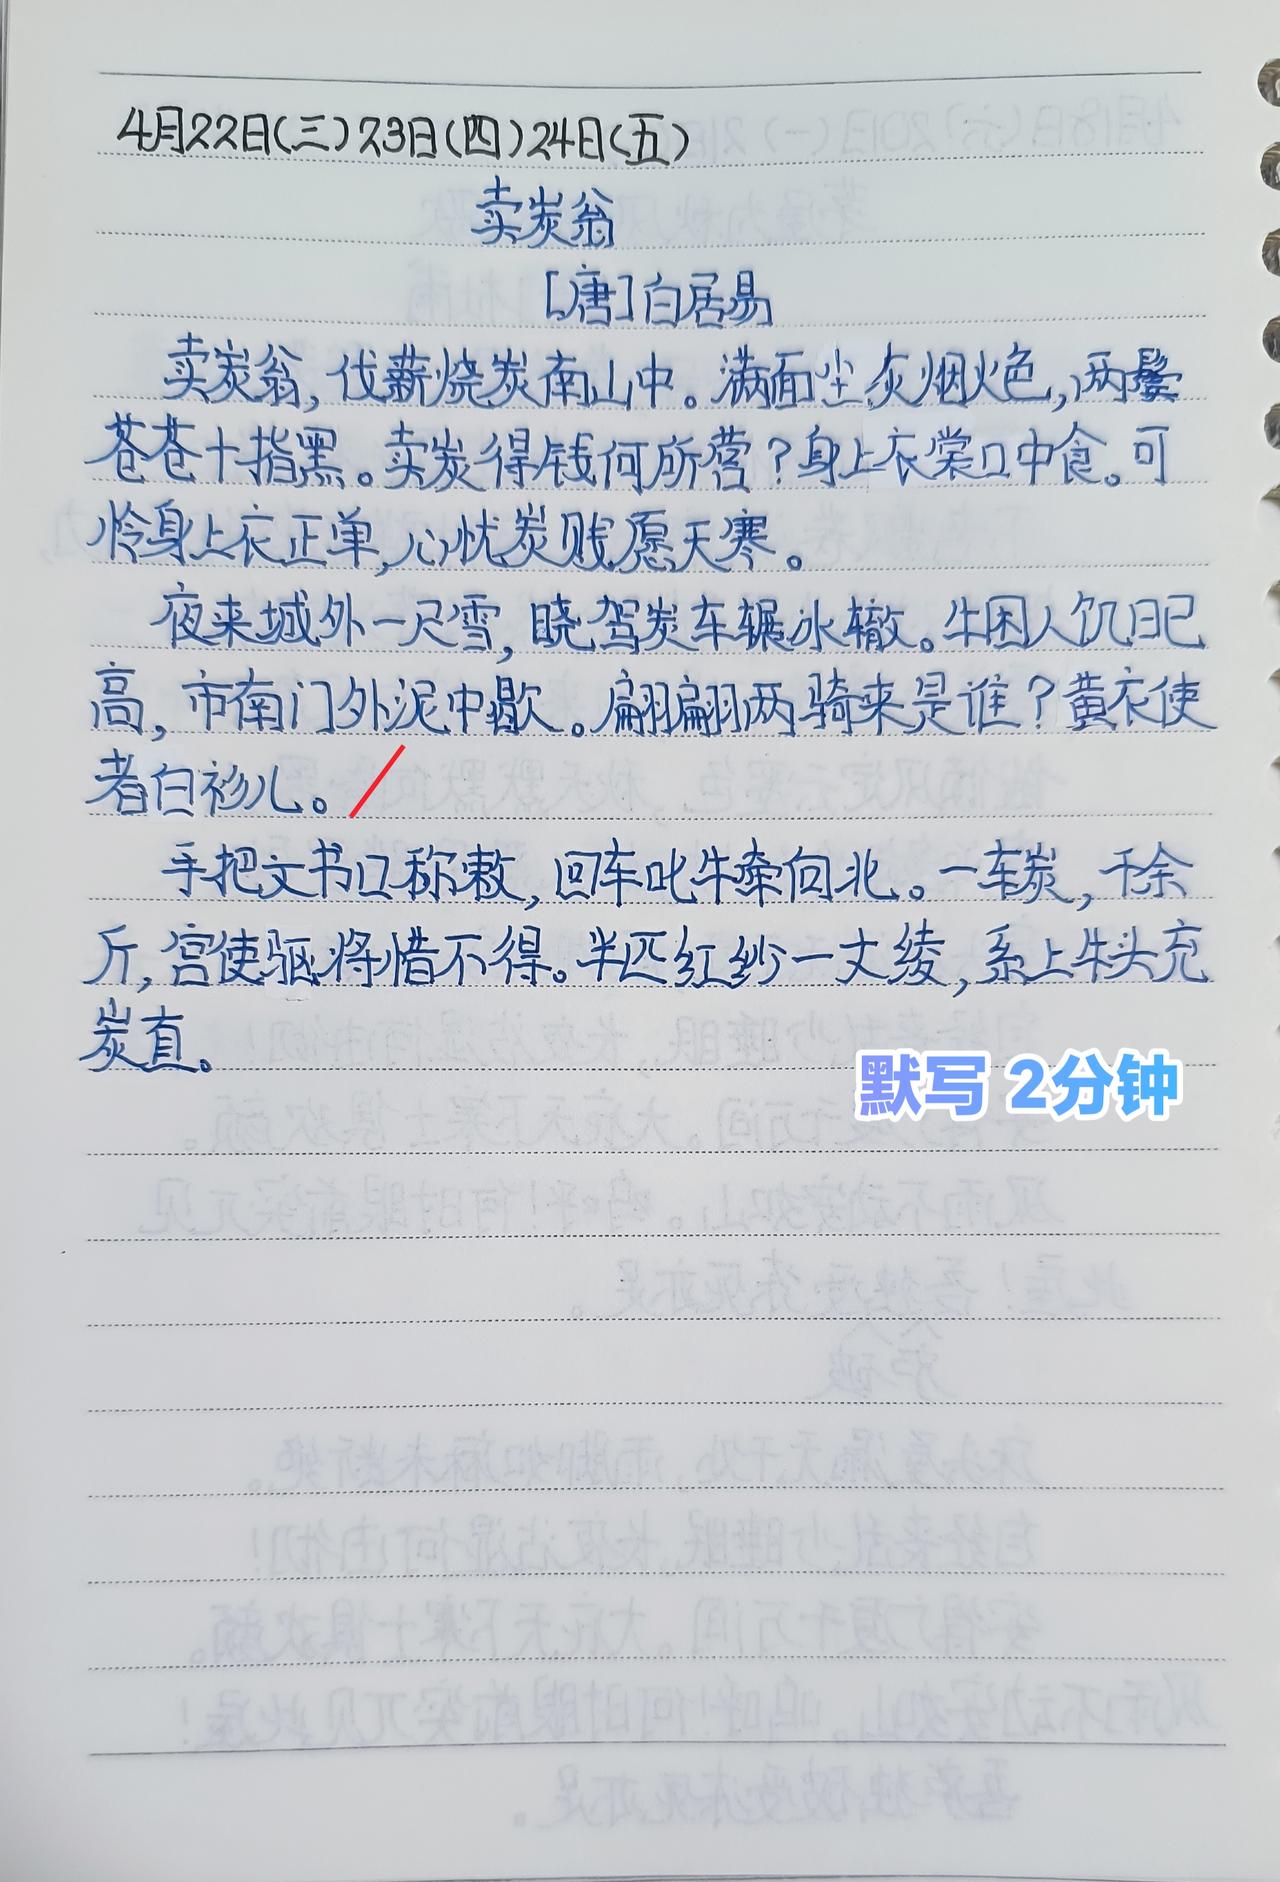 4月22日(三)23日(四)24日(五)
卖炭翁
[唐]白居易
卖炭翁,伐薪烧炭南山中。满面尘灰烟火色,两鬓
苍苍十指黑。卖炭得钱何所营?身上衣裳口中食。可
怜身上衣正单,心忧炭贱愿天寒。
夜来城外一尺雪,晓驾炭车辗冰辙。牛困人饥日已
高,市南门外泥中歇。翩翩两骑来是谁?黄衣使
者白衫儿。
手把文书口称敕,回车叱牛牵向北。一车炭,千余
斤,宫使驱将惜不得。半匹红纱一丈绫,系上牛头充
炭直。
默写 2分钟